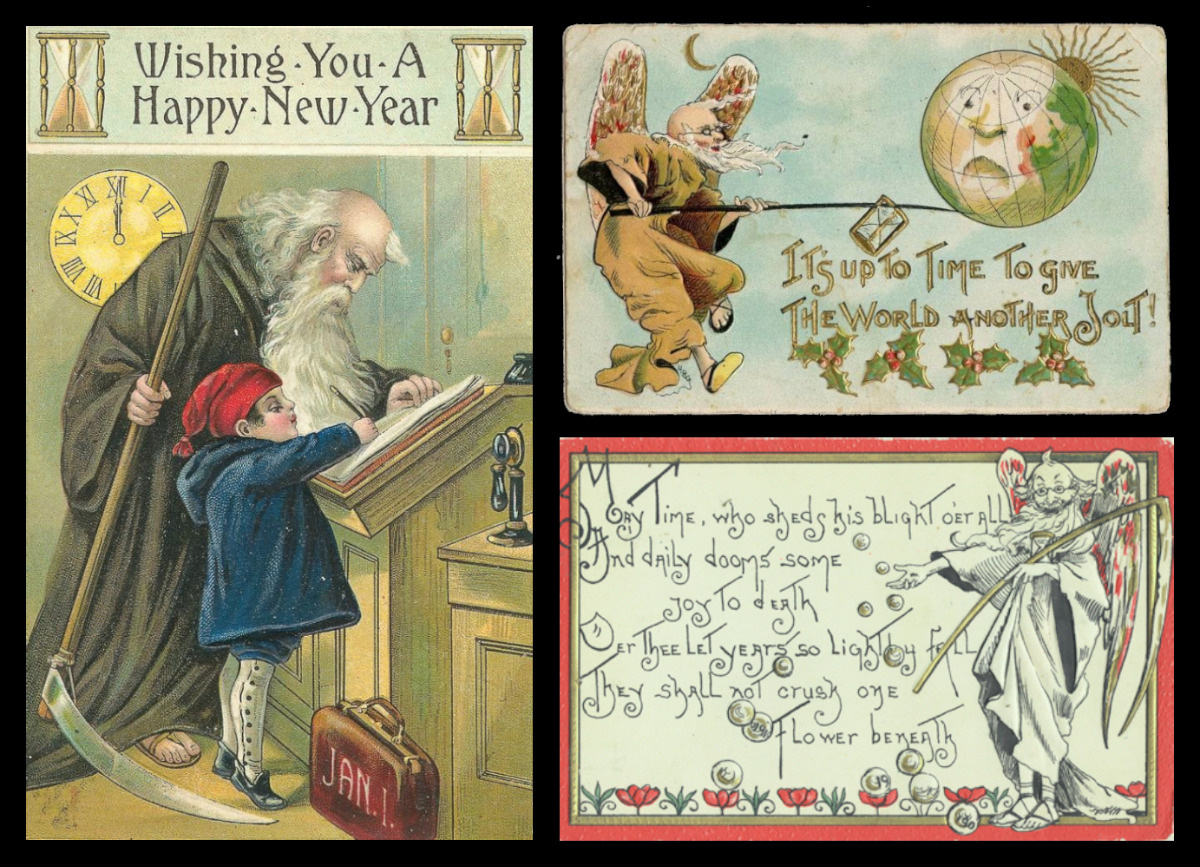 Wishing·You·A
Happy·New·Year
XII I II
IX X XI
VIII
VII
JAN. 1.
IT'S UP TO TIME TO GIVE
THE WORLD ANOTHER JOLT!
MAY TIME, WHO SHEDS HIS BLIGHT O'ER ALL
AND DAILY DOOMS SOME
JOY TO DEATH
O'ER THEE LET YEARS SO LIGHTLY FALL
THEY SHALL NOT CRUSH ONE
FLOWER BENEATH